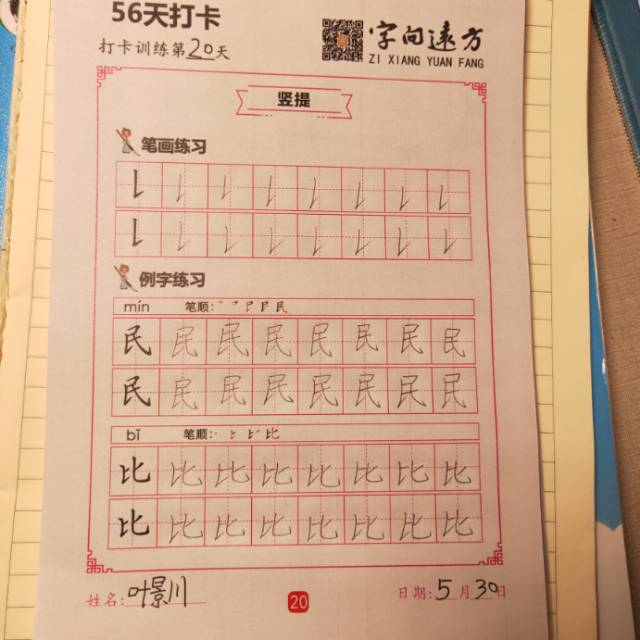 56天打卡
打卡训练第20天
字间远方
ZI XIANG YUAN FANG
竖提
笔画练习
例字练习
mín 笔顺:
民 民 民 民 民 民 民 民
民 民 民 民 民 民 民 民
bǐ 笔顺:
比 比 比 比 比 比 比 比
比 比 比 比 比 比 比 比
姓名:叶景川
20
日期:5月30日